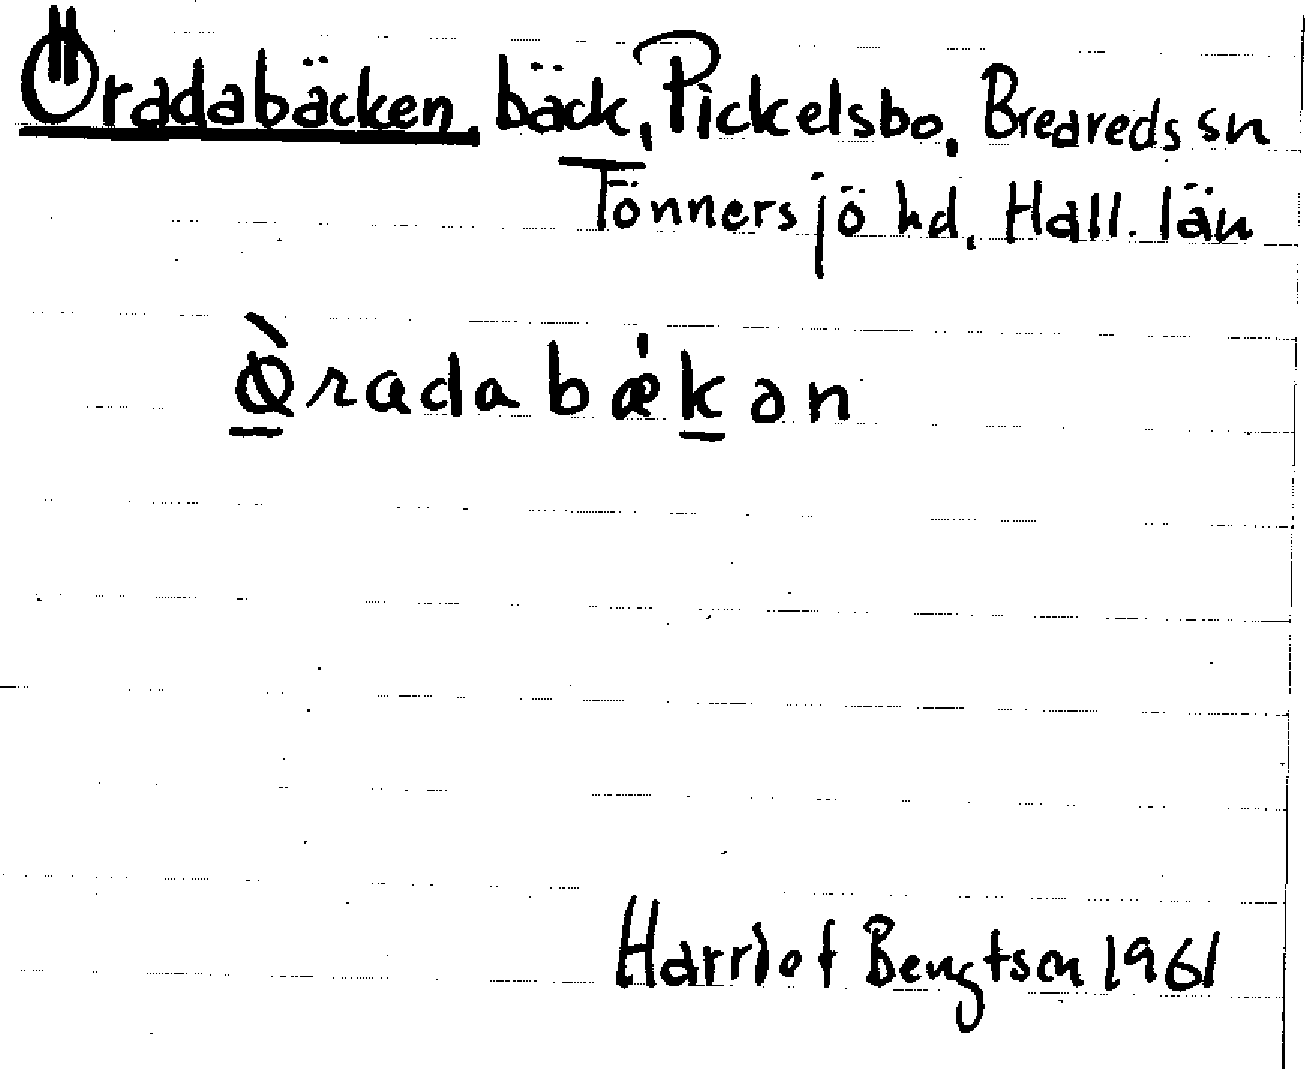 Öradabäcken, bäck, Pickelsbo, Breareds sn
Tönnersjö hd, Hall. län
Ø̀radabǽkən
Harriet Bengtson 1961